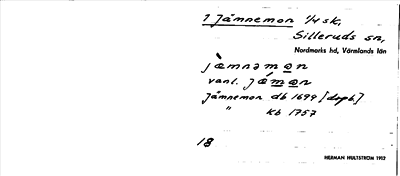 1 Jämnemon 1/4 sk,
Silleruds sn,
Nordmarks hd, Värmlands län
jæ̀mnəmon
vanl. jǽmon
Jämnemon db 1699 [dopb]
" kb 1757
18
HERMAN HULTSTRÖM 1912